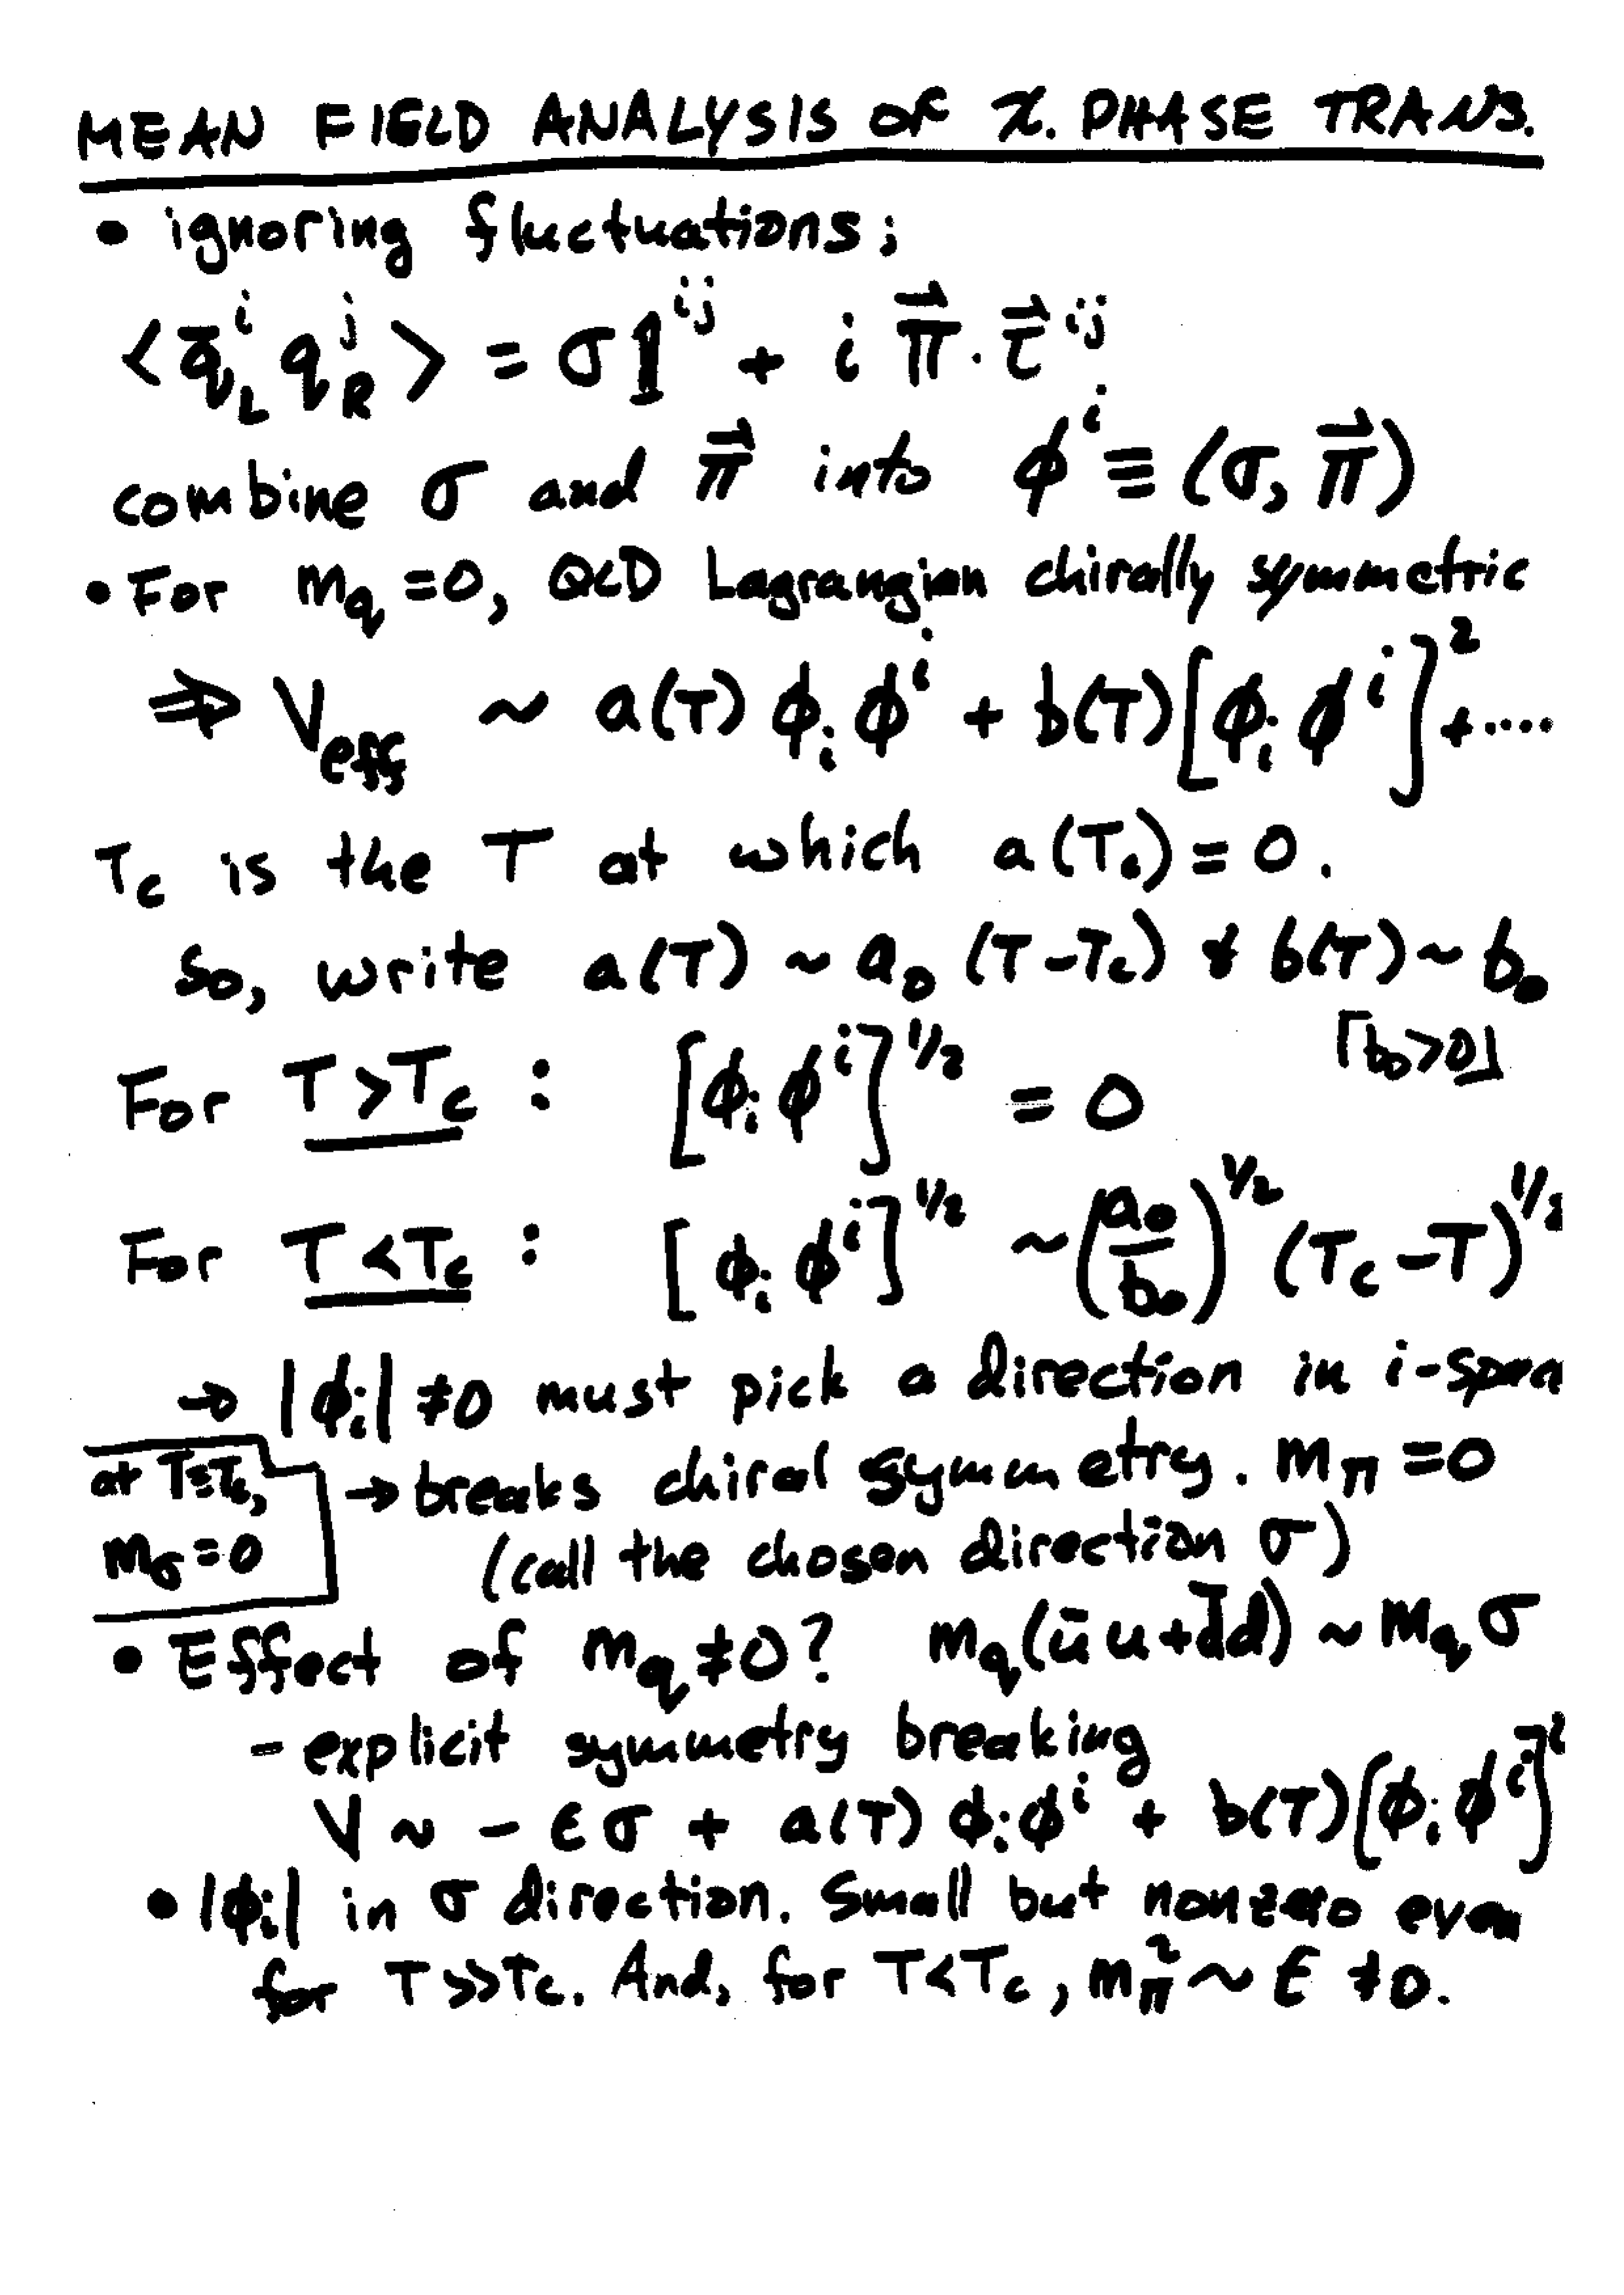 MEAN FIELD ANALYSIS OF χ. PHASE TRANS.
• ignoring fluctuations;
⟨q̄ᵢ_L qʲ_R⟩ = σ 𝟙^{ij} + i π⃗ · τ⃗^{ij}
combine σ and π⃗ into ϕ^i ≡ (σ, π⃗)
• For m_q = 0, QCD Lagrangian chirally symmetric
⇒ V_eff ~ a(T) ϕ_i ϕ^i + b(T) [ϕ_i ϕ^i]² + ....
T_c is the T at which a(T_c) = 0.
So, write a(T) ~ a_0 (T - T_c) & b(T) ~ b_0
⌈b_0 > 0⌋
For T > T_c : [ϕ_i ϕ^i]^{1/2} = 0
For T < T_c : [ϕ_i ϕ^i]^{1/2} ~ (a_0/b_0)^{1/2} (T_c - T)^{1/2}
→ |ϕ_i| ≠ 0 must pick a direction in i-spa
→ breaks chiral symmetry. m_π = 0
(call the chosen direction σ)
at T=T_c,
m_σ = 0
• Effect of m_q ≠ 0? m_q (ūu + d̄d) ~ m_q σ
- explicit symmetry breaking
V ~ - ϵσ + a(T) ϕ_i ϕ^i + b(T) [ϕ_i ϕ^i]²
• |ϕ_i| in σ direction. Small but nonzero even
for T >> T_c. And, for T < T_c, m_π² ~ ϵ ≠ 0.